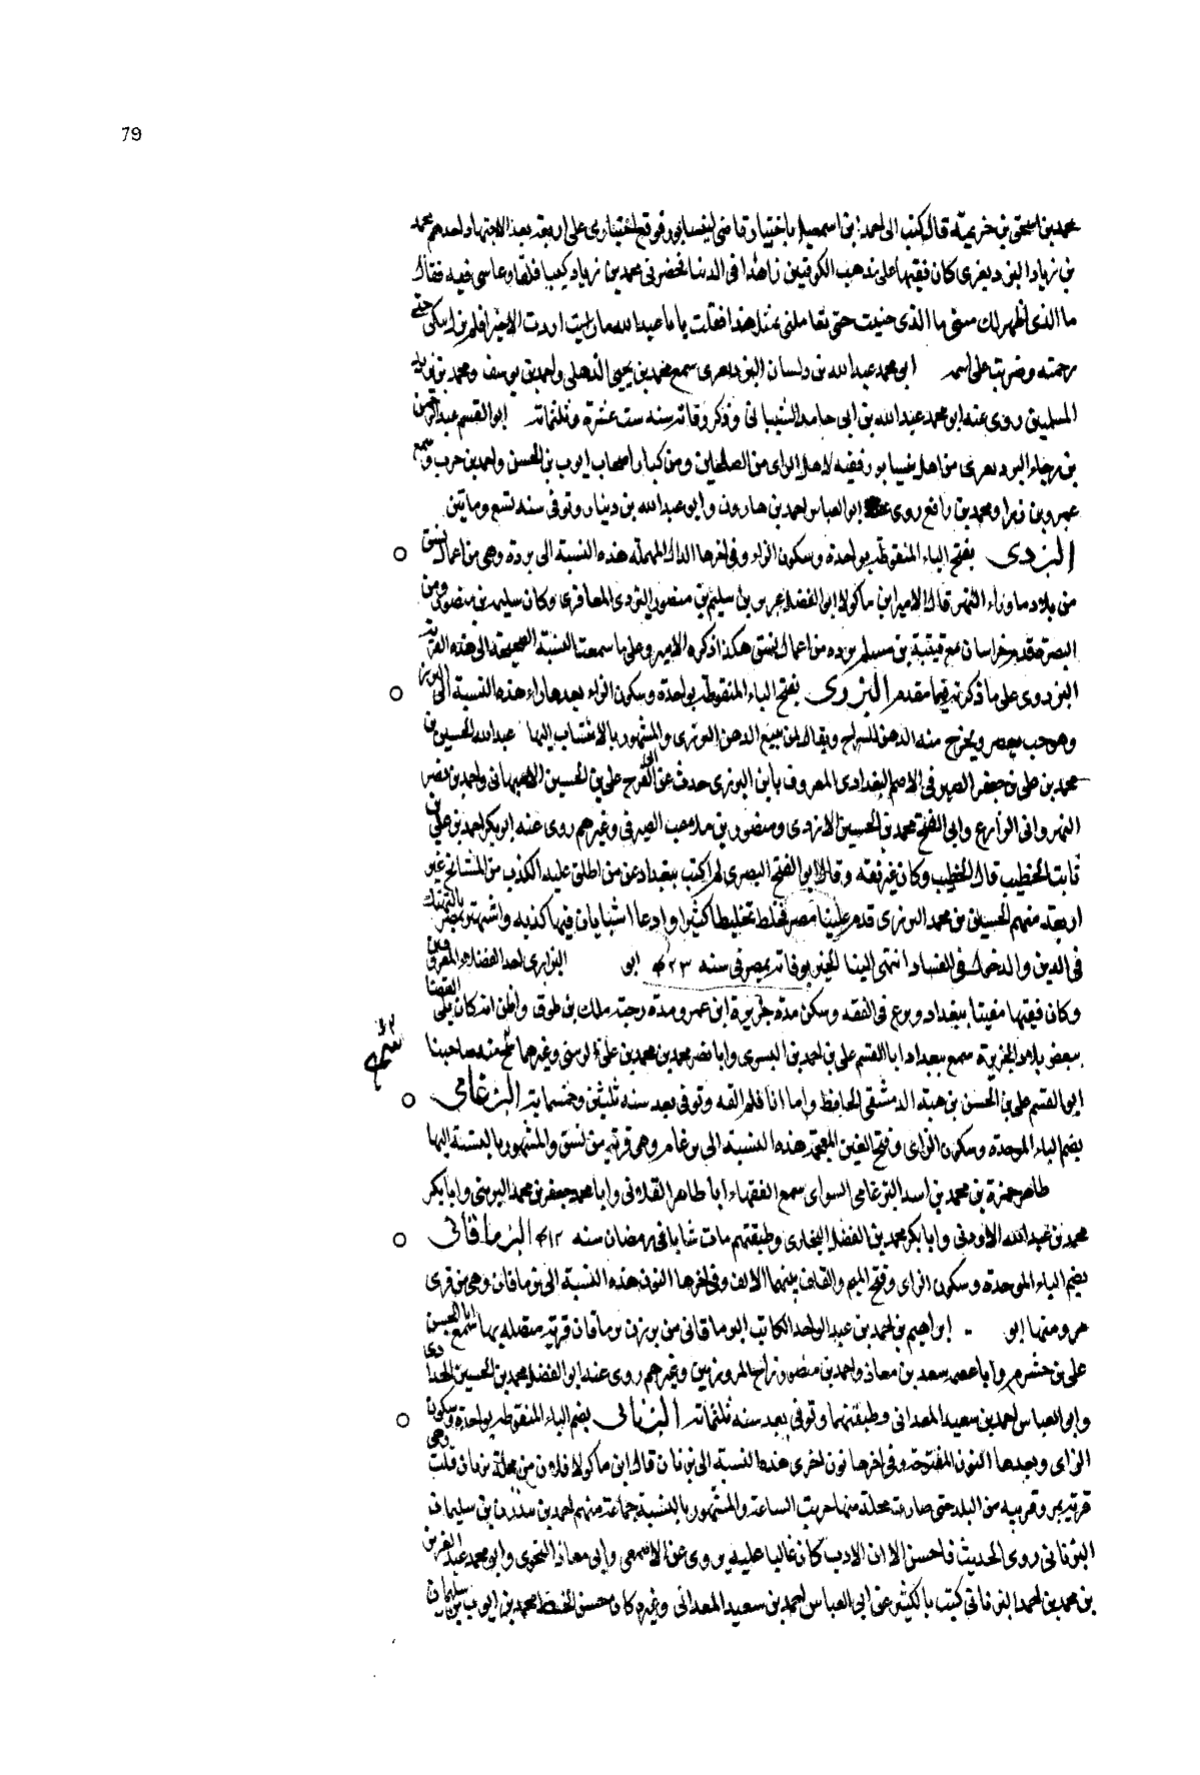 79
محمد بن اسحق بن خزيمة قال كتب الى احمد بن اسمعيل باختيار قاضى لنيسابور فوقع اختيارى على اربعة بعد الاجتهاد احدهم محمد
بن زياد البزديغرى كان فقيها على مذهب الكوفيين زاهدا فى الدنيا فحضرنى محمد بن زياد كئيبا قلقا وعاتبنى فيه فقال
ما الذى ظهر لك منى ما الذى جنيت حتى تعاملنى بمثل هذا فقلت يا با عبد الله ما اردت الا خيرا فلم يزل يبكى حتى
رحمته وضربت على اسمه ابو محمد عبد الله بن البزديغرى سمع محمد بن يحيى الذهلى واحمد بن يوسف ومحمد بن يزيد
السلميين روى عنه ابو محمد عبد الله بن ابى حامد الشيبانى وذكر وفاته سنه ست عشرة وثلثمائة ابو القسم عبد الرحمن
بن رجاء البزديغرى من اهل نيسابور فقيه لاهل الراى من الصالحين ومن كبار اصحاب ايوب بن الحسن واحمد بن حرب وسمع
عمرو بن زرارة ومحمد بن رافع روى عنه ابو العباس احمد بن هارون وابو عبد الله بن دينار وتوفى سنه تسع ومايتين
البزدى بفتح الباء المنقوطة بواحدة وسكون الزاء وفى اخرها الدال المهملة هذه النسبة الى بزدة وهى من اعمال نسف
من بلاد ما وراء النهر قال الامير ابن ماكولا ابو الفضل عزير بن سليم بن منصور البزدى العامرى وكان سليم بن منصور من
البصرة قدم خراسان مع قتيبة بن مسلم بزده من اعمال نسف هكذا ذكره الامير وعلى ما سمعت النسبة الصحيحة الى هذه القرية
البزدوى على ما ذكرته فيما تقدم البزرى بفتح الباء المنقوطة بواحدة وسكون الزاء بعدها راء هذه النسبة الى البزر
وهو حب يعصر ويخرج منه الدهن للسراج ويقال لمن يبيع الدهن البزرى والمشهور بالانتساب اليها عبد الله الحسين بن
محمد بن على بن جعفر الصيرفى الاصم البغدادى المعروف بابن البزرى حدث عن ابى الفرج على بن الحسين الاصبهانى واحمد بن نصر
النهروانى الزارع وابى الفتح محمد بن الحسين الازدى ومنصور بن ملاعب الصيرفى وغيرهم روى عنه ابو بكر احمد بن على بن
ثابت الخطيب قال الخطيب وكان غير ثقه وقال ابو الفتح البصرى لم اكتب ببغداد عن من اطلق عليه الكذب من المشائخ غير
اربعة منهم الحسين بن محمد البزرى قدم علينا مصر فخلط تخليطا كثيرا وادعا اشيا بان فيها كذبه واشتهر بالتهتك
فى الدين والدخول فى الفساد انتهى الينا الخبر بوفاته بمصر فى سنه ٤٢٣ ابو البزارى احد الفضلاء المعروفين
وكان فقيها مفتيا ببغداد وبرع فى الفقه وسكن مدة جزيرة ابن عمر ومدة رحبة ملك بن طوق واظن انه كان يلى القضا
ببعض بلاد الجزيرة سمع ببغداد ابا القسم على بن احمد بن البسرى وابا نصر محمد بن محمد بن على الزينبى وغيرهما سمع منه صاحبنا
ابو القسم على بن الحسن بن هبة الله الدمشقى الحافظ واما انا فلم القه وتوفى بعد سنه ثلثين وخمسماية البزغامى
بضم الباء الموحدة وسكون الزاى وفتح الغين المعجمة هذه النسبة الى بزغام وهى قرية من نسف والمشهور بالنسبة اليها
طاهر حمزة بن محمد بن اسد البزغامى السواى سمع الفقهاء ابا طاهر القلانى وابا محمد جعفر بن محمد التوبنى وابا بكر
محمد بن عبد الله الاودنى وابا بكر محمد بن الفضل البخارى وطبقتهم مات شابا فى رمضان سنه ٤١٢ البزماقانى
بضم الباء الموحدة وسكون الزاى وفتح الميم والقاف بينهما الالف وفى اخرها النون هذه النسبة الى بزماقان وهى من قرى
مرو منها ابو ابراهيم بن احمد بن عبد الواحد الكاتب البزماقانى من بوزن بزماقان قرية متصله بها سمع ابا الحسن
على بن خشرم وابا عصمه سعد بن معاذ واحمد بن منصور زاج المروزيين وغيرهم روى عنه ابو الفضل محمد بن الحسين الحدادى
وابو العباس احمد بن سعيد المعدانى وطبقتهما وتوفى بعد سنه ثلثمائة البزنانى بضم الباء المنقوطة بواحدة وسكون
الزاى وبعدها النون المفتوحة وفى اخرها نون اخرى هذه النسبة الى بزنان قال ابن ماكولا فلان من محلة بزنان قلت وهى
قرية بمرو قريبه من البلد حتى صارت محلة منها خربت الساعة والمشهور بالنسبة جماعة منهم احمد بن بندون بن سليمان
البزنانى روى الحديث فاحسن الا ان الادب كان غالبا عليه يروى عن الاصمعى وابى معاذ النحوى وابو محمد عبد العزيز
بن محمد بن احمد البزنانى كتب بالكثير عن ابى العباس احمد بن سعيد المعدانى وغيره كان حسن الخط محمد بن ايوب بن سليمان